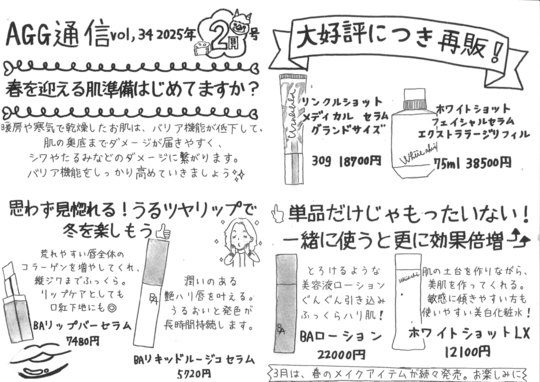 AGG通信 vol,34 2025年2月号
春を迎える肌準備はじめてますか?
暖房や寒気で乾燥したお肌は、バリア機能が低下して、
肌の奥底までダメージが届きやすく、
シワやたるみなどのダメージに繋がります。
バリア機能をしっかり高めていきましょう
思わず見惚れる!うるツヤリップで
冬を楽しもう
荒れやすい唇全体の
コラーゲンを増やしてくれ、
縦ジワまでふっくら。
リップケアとしても
口紅下地にも◎
BAリップバーセラム
7480円
潤いのある
艶ハリ唇を叶える。
うるおいと発色が
長時間持続します。
BAリキッドルージュセラム
5720円
大好評につき再販!
リンクルショット
メディカル セラム
グランドサイズ
30g 18700円
ホワイトショット
フェイシャルセラム
エクストララージリフィル
75ml 38500円
単品だけじゃもったいない!
一緒に使うと更に効果倍増
とろけるような
美容液ローション
ぐんぐん引き込み
ふっくらハリ肌!
BAローション
22000円
肌の土台を作りながら、
美肌を作ってくれる。
敏感に傾きやすい方も
使いやすい美白化粧水!
ホワイトショットLX
12100円
3月は、春のメイクアイテムが続々発売。お楽しみに